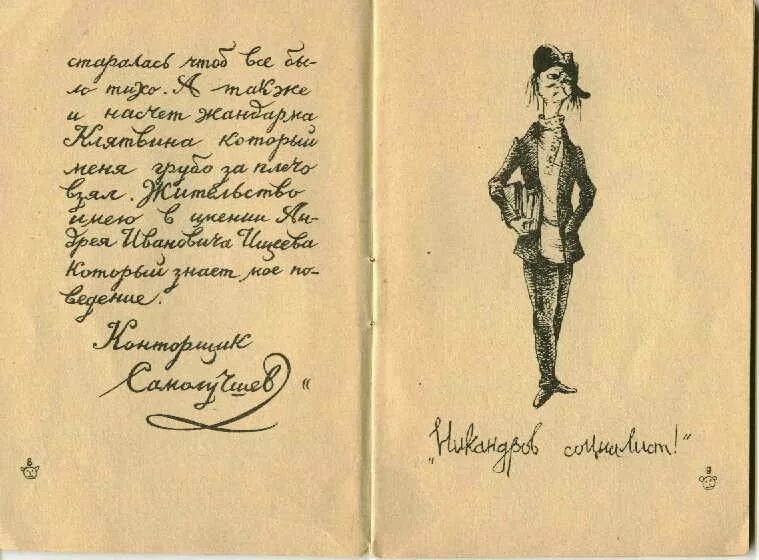 старалась чтоб все бы-
ло тихо. А также
и насчет жандарма
Клятвина который
меня грубо за плечо
взял. Жительство
имею в имении Ан-
дрея Ивановича Ищеева
который знает мое по-
ведение.
Конторщик
Самолучшев"
8
„Никандров социалист!"
9